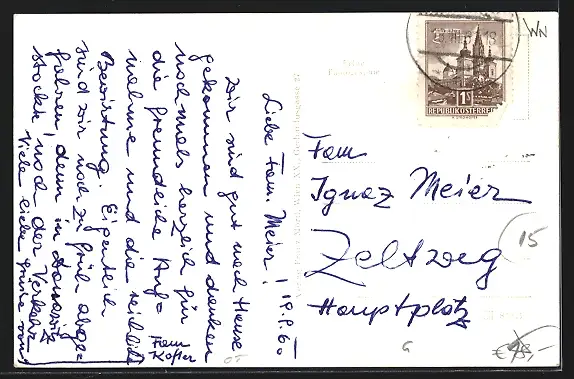 Liebe Fam. Meier! 19.9.60
Wir sind gut nach Hause
gekommen und danken
nochmals herzlich für
die freundliche Auf-
nahme und die reichliche
Bewirtung. Eigentlich
sind wir noch zu früh abge-
fahren, denn in
stockte noch der Verkehr
Viele liebe Grüße von
Fam
Kofler
Fam
Ignaz Meier
Zeltweg
Hauptplatz
REPUBLIK ÖSTERREICH
1S
WN
15